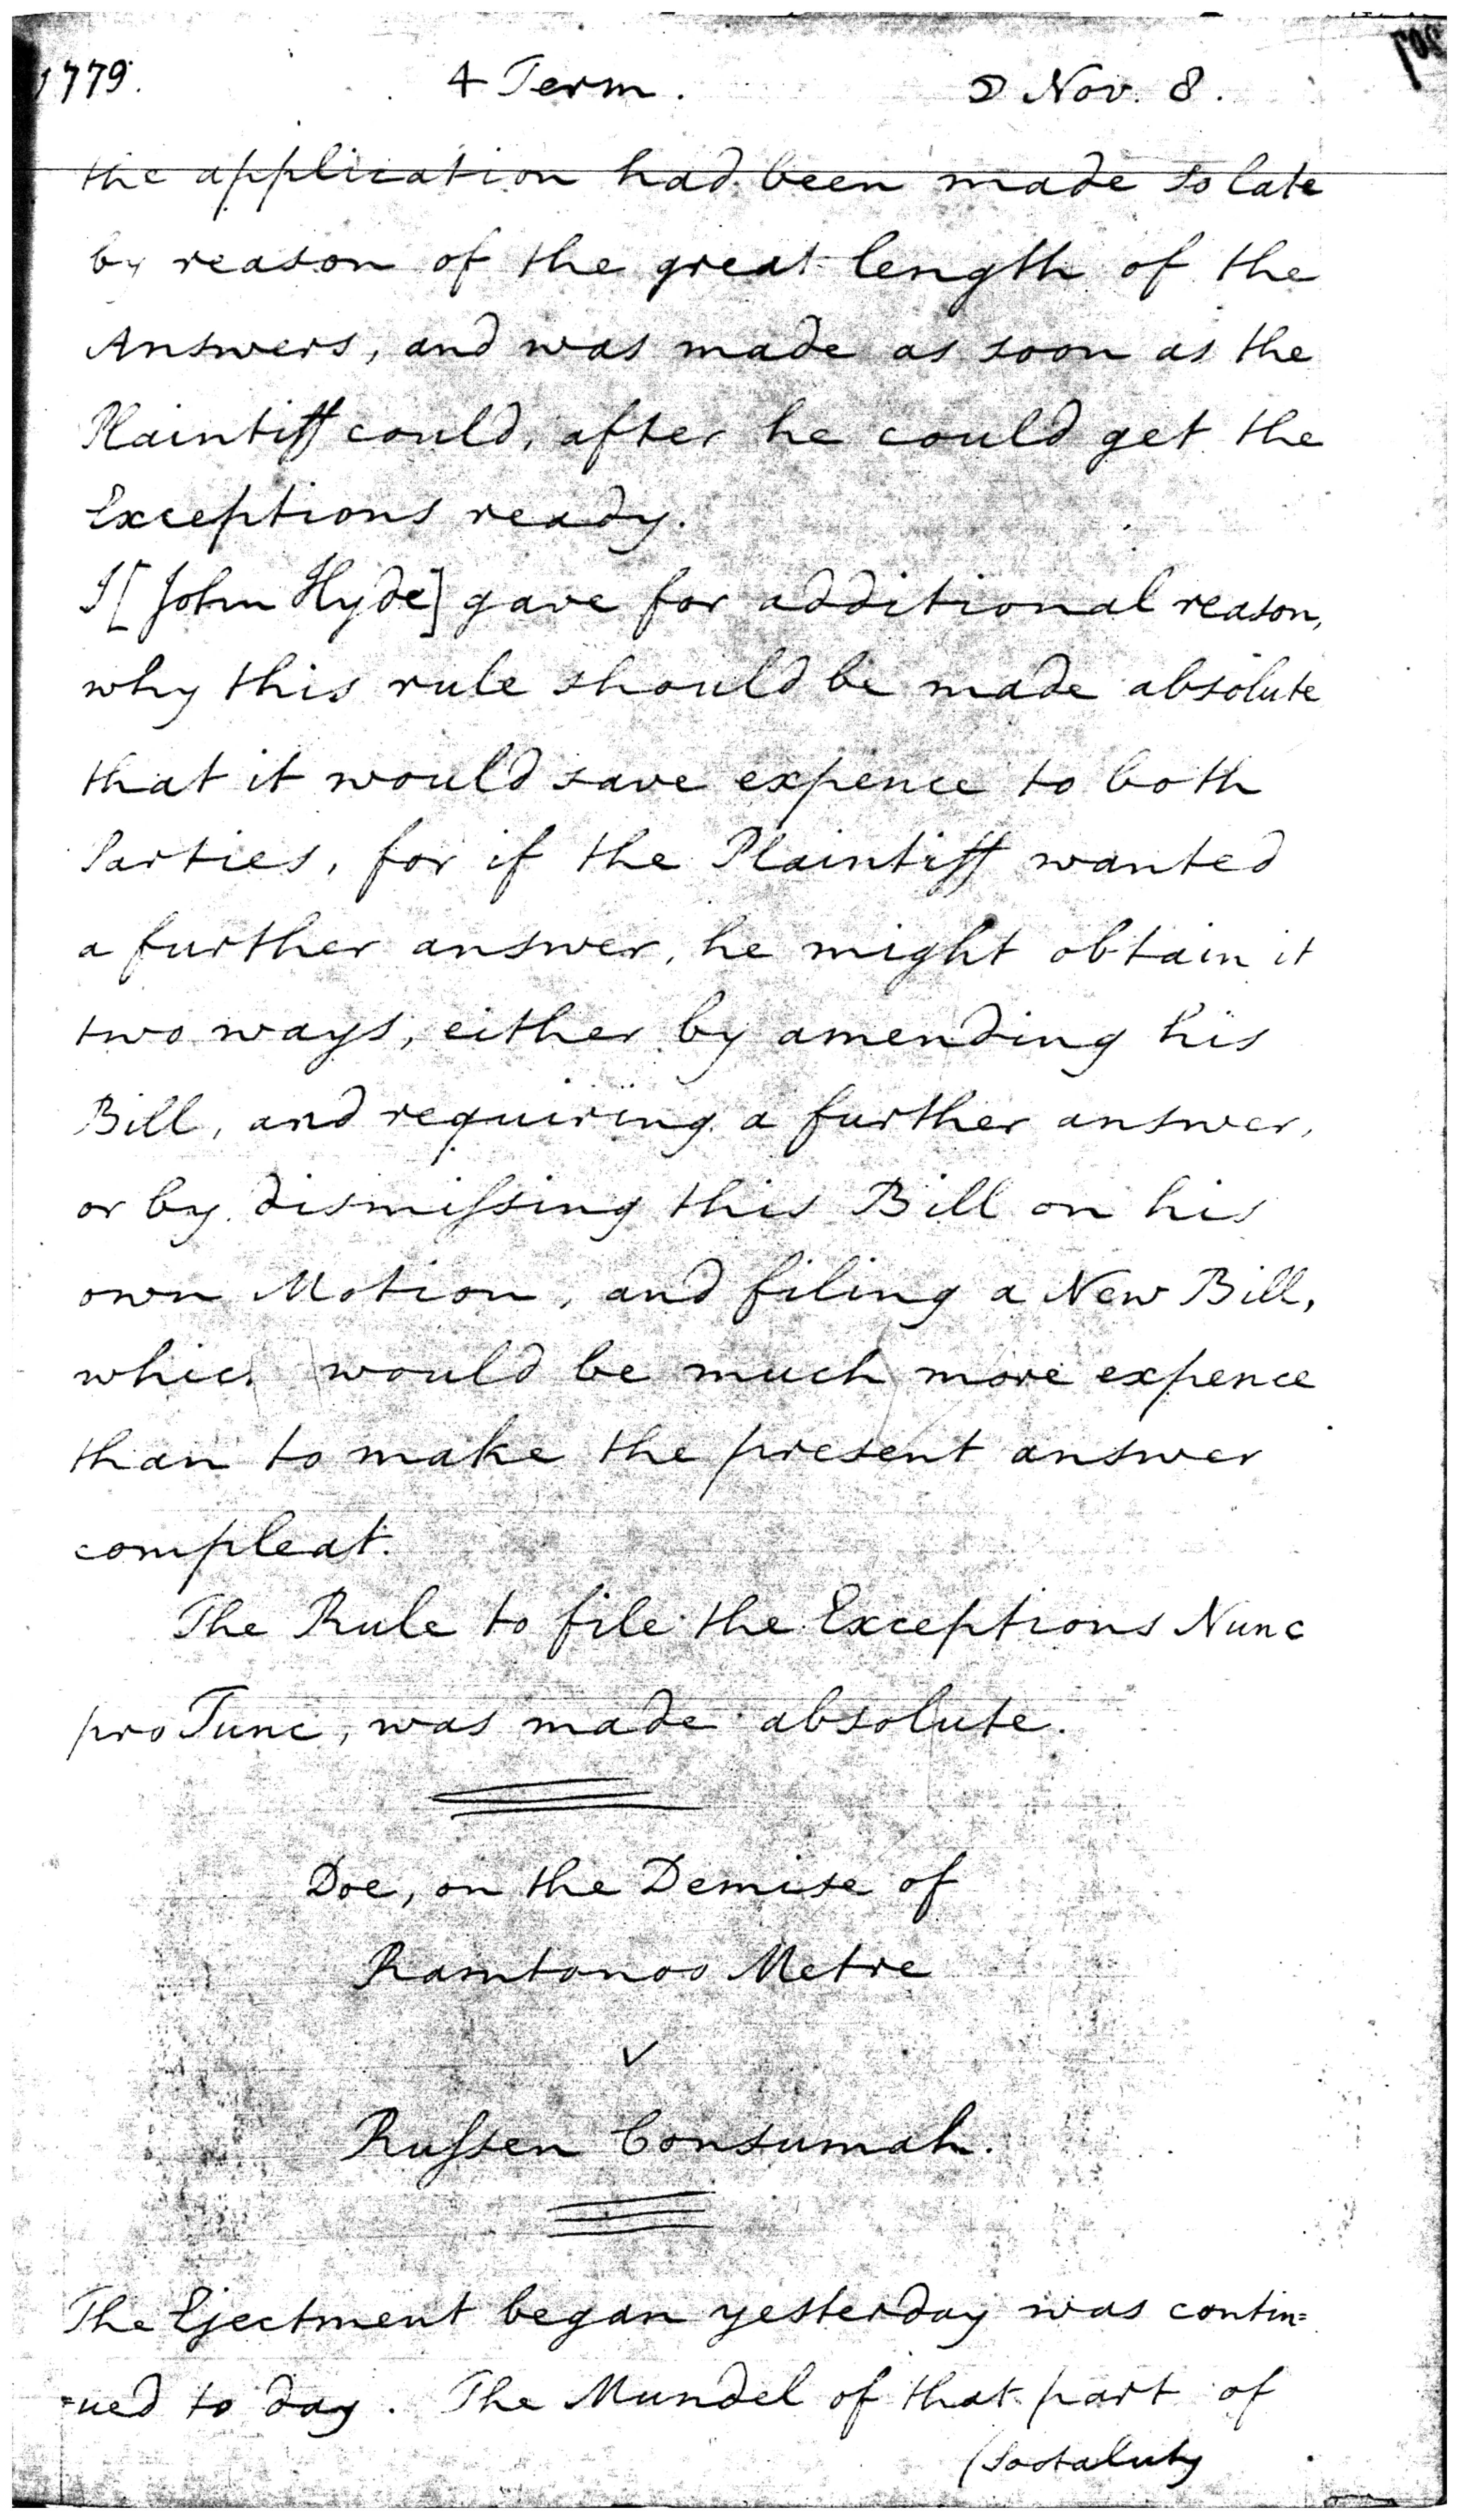 1779. 4 Term. Nov. 8.
the application had been made so late
by reason of the great length of the
Answers, and was made as soon as the
Plaintiff could, after he could get the
Exceptions ready.
I [John Hyde] gave for additional reason,
why this rule should be made absolute
that it would save expence to both
Parties, for if the Plaintiff wanted
a further answer, he might obtain it
two ways, either by amending his
Bill, and requiring a further answer,
or by dismiſsing this Bill on his
own Motion, and filing a New Bill,
which would be much more expence
than to make the present answer
compleat.
The Rule to file the Exceptions Nunc
pro Tunc, was made absolute.
Doe, on the Demise of
Ramtonoo Metre
v
Ruſsen Consumah.
The Ejectment began yesterday was contin=
=ued to day. The Mundel of that part of